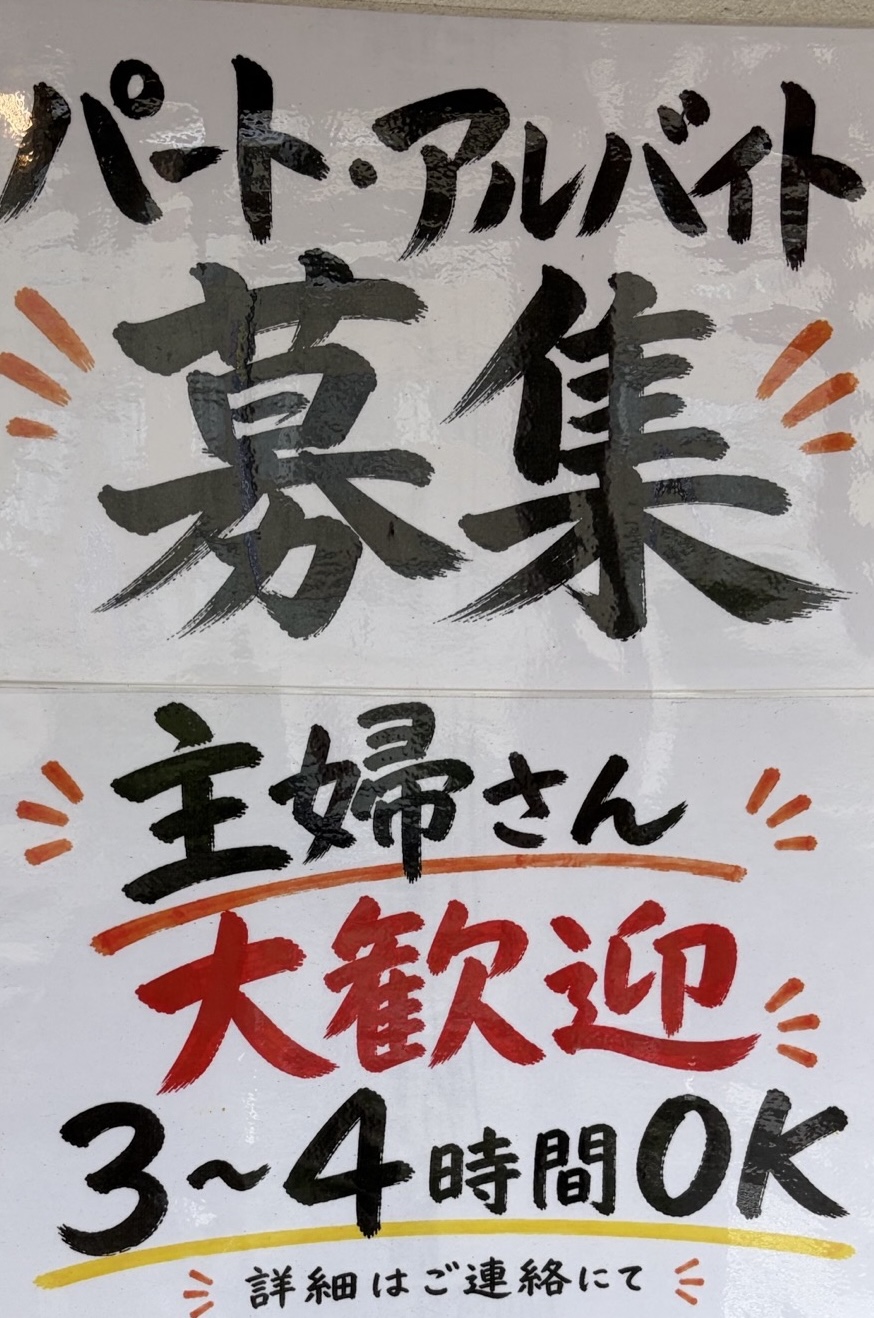 パート・アルバイト
募集
主婦さん
大歓迎
3～4時間OK
詳細はご連絡にて